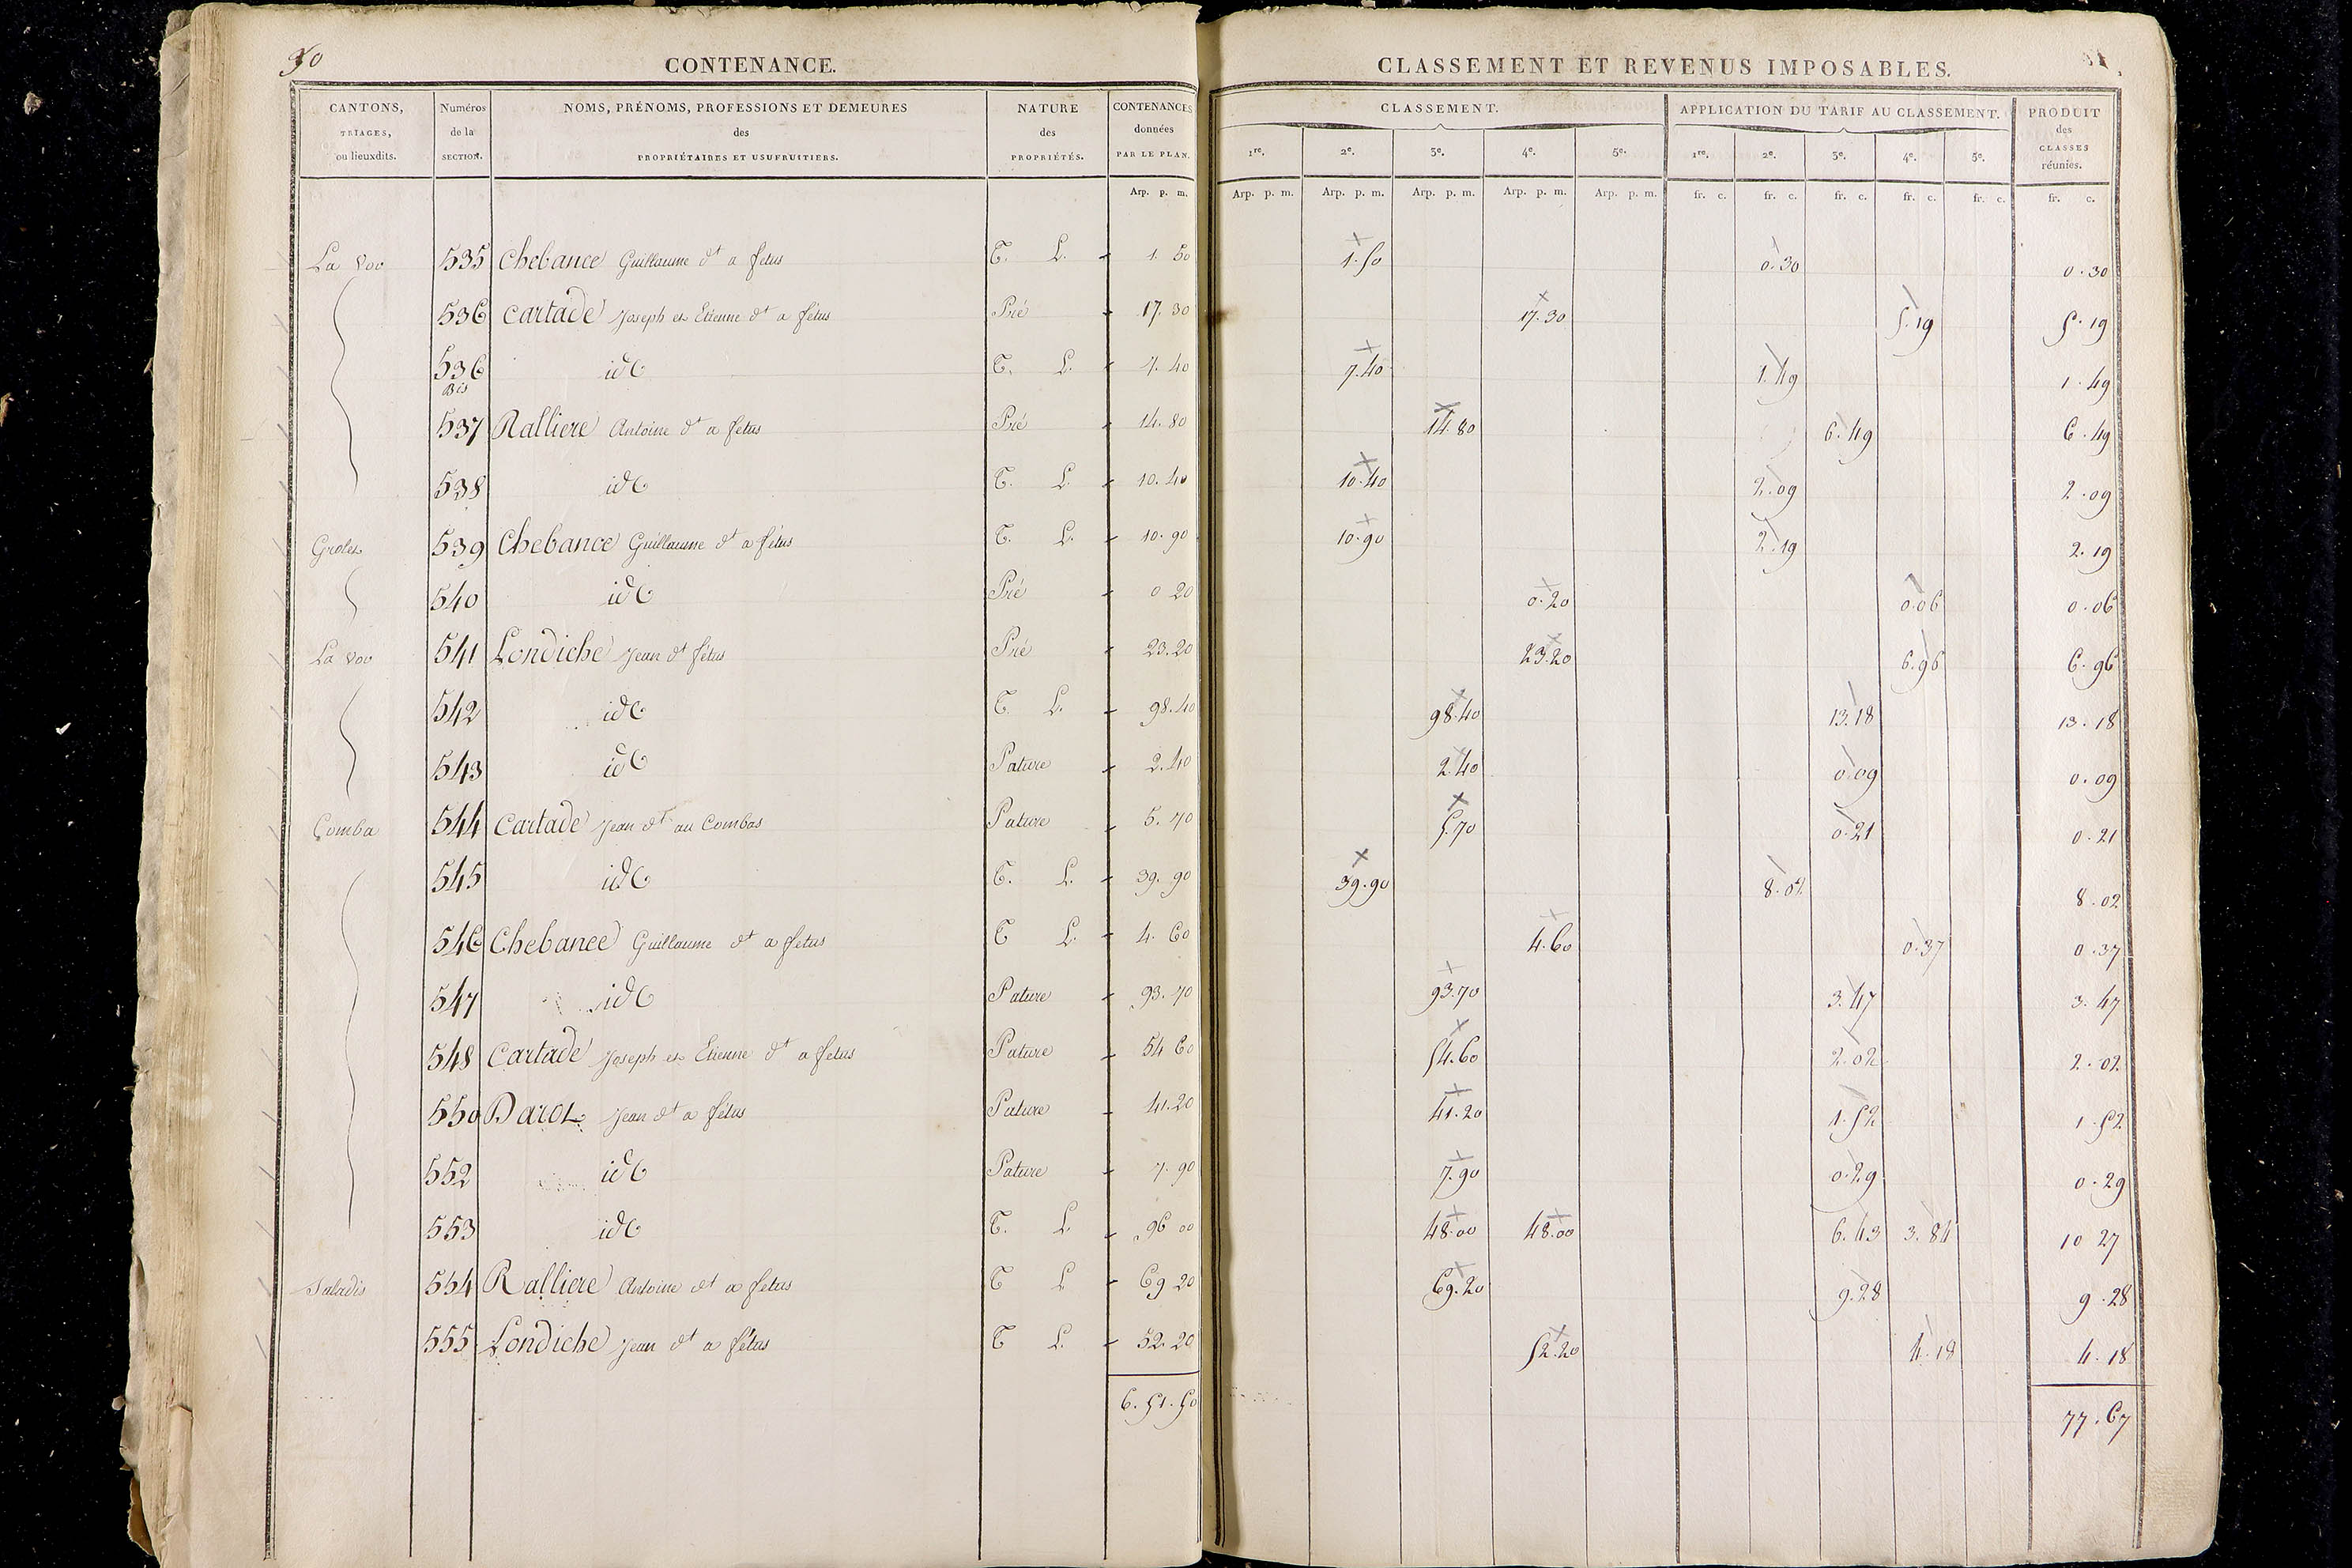 30
CONTENANCE.
CANTONS, TRIAGES, ou lieuxdits. Numéros de la SECTION. NOMS, PRÉNOMS, PROFESSIONS ET DEMEURES des PROPRIÉTAIRES ET USUFRUITIERS. NATURE des PROPRIÉTÉS. CONTENANCES données PAR LE PLAN.
Arp. p. m.
CLASSEMENT ET REVENUS IMPOSABLES.
CLASSEMENT. APPLICATION DU TARIF AU CLASSEMENT. PRODUIT des CLASSES réunies.
1re. 2e. 3e. 4e. 5e. 1re. 2e. 3e. 4e. 5e.
Arp. p. m. Arp. p. m. Arp. p. m. Arp. p. m. Arp. p. m. fr. c. fr. c. fr. c. fr. c. fr. c. fr. c.
La Voo 535 Chebance Guillaume dt a fetus T. L. 1. 50 1.50 0.30 0.30
536 Cartade Joseph et Etienne dt a fétus Pré 17. 30 17.30 5.19 5.19
536 Bis id T. L. 7. 40 7.40 1.49 1.49
537 Ralliere Antoine dt a fetus Pré 14. 80 14.80 6.49 6.49
538 id T. L. 10. 40 10.40 2.09 2.09
Groles 539 Chebance Guillaume dt a fétus T. L. 10. 90 10.90 2.19 2.19
540 id Pré 0 20 0.20 0.06 0.06
La Voo 541 Londiche Jean dt fétus Pré 23.20 23.20 6.96 6.96
542 id T. L. 98.40 98.40 13.18 13.18
543 id Pature 2.40 2.40 0.09 0.09
Comba 544 Cartade Jean dt au Combas Pature 5. 70 5.70 0.21 0.21
545 id T. L. 39. 90 39.90 8.02 8.02
546 Chebance Guillaume dt a fetus T L. 4. 60 4.60 0.37 0.37
547 id Pature 93. 70 93.70 3.47 3.47
548 Cartade Joseph et Etienne dt a fetus Pature 54 60 54.60 2.02 2.02
550 Darot Jean dt a fetus Pature 41.20 41.20 1.52 1.52
552 id Pature 7. 90 7.90 0.29 0.29
553 id T. L. 96 00 48.00 48.00 6.43 3.84 10 27
Saladis 554 Ralliere Antoine dt a fetus T L 69 20 69.20 9.28 9.28
555 Londiche Jean dt a fétus T L. 52. 20 52.20 4.18 4.18
6.51.50 77.67